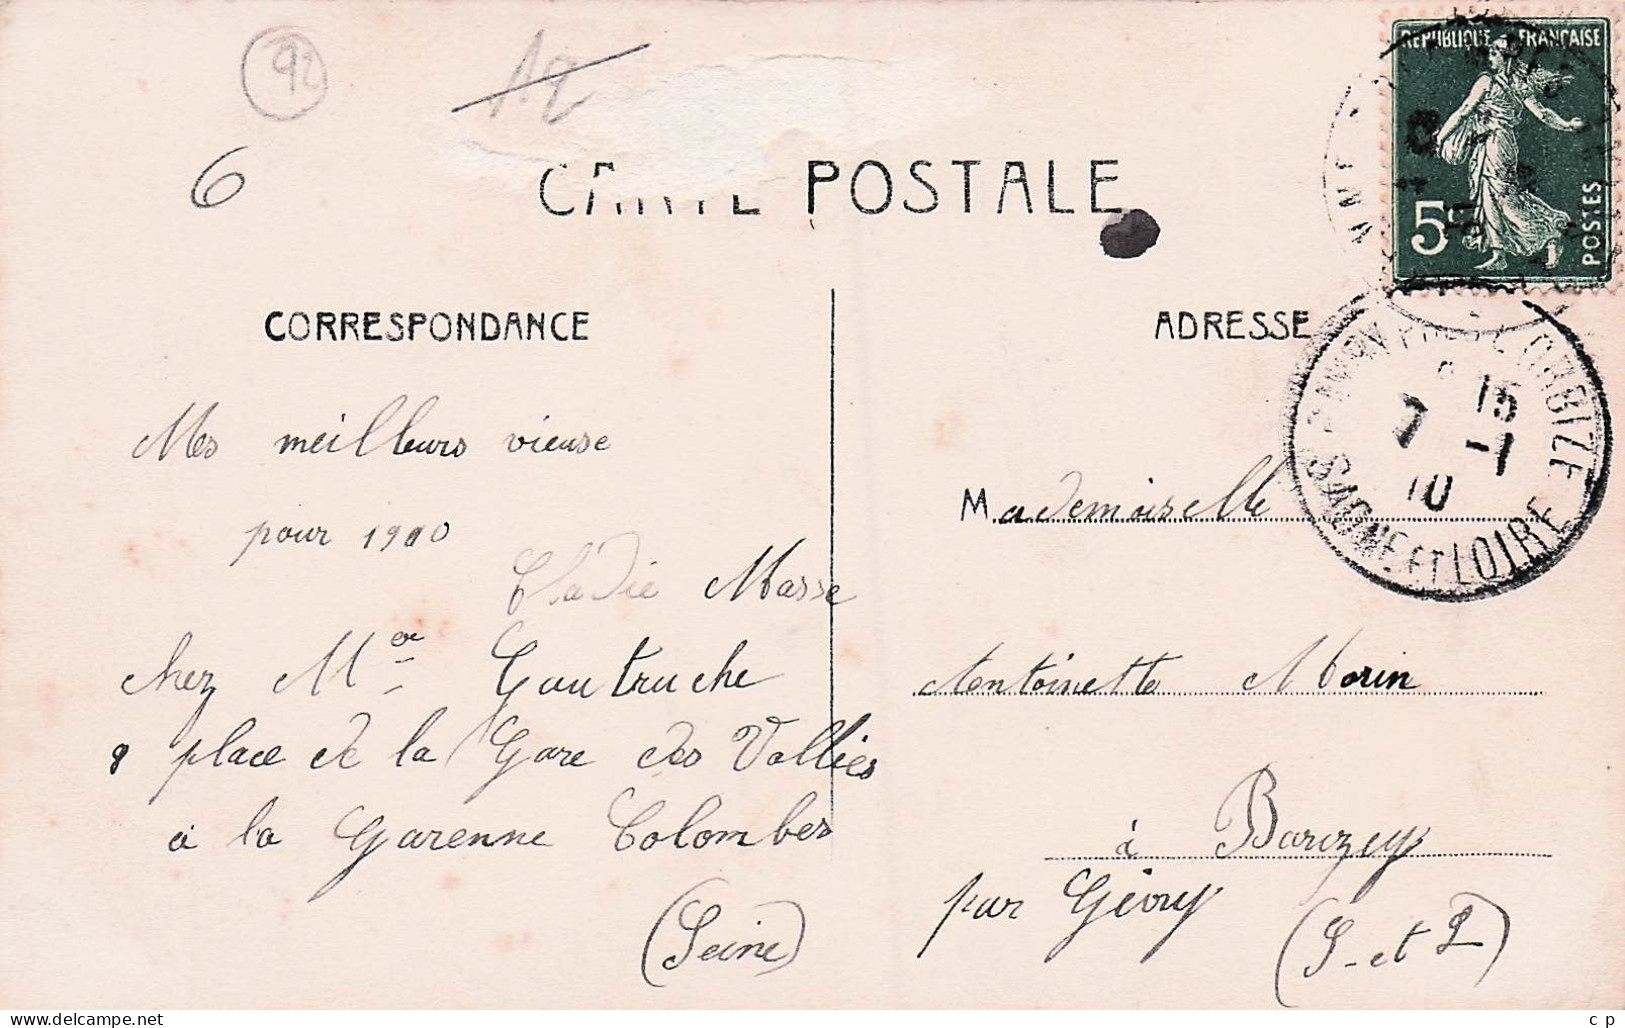 92
12
6
CARTE POSTALE
REPUBLIQUE FRANÇAISE
5c
POSTES
CORRESPONDANCE
ADRESSE
15
7 -1
10
ORBIZE
SAONE ET LOIRE
Mes meilleurs vieuse
pour 1910
Masse
chez Mme Gautruche
8 place de la Gare des Vallées
à la Garenne Colombes
(Seine)
Mademoiselle
Antoinette Morin
à Barizey
par Givry
(S-et L)
c p